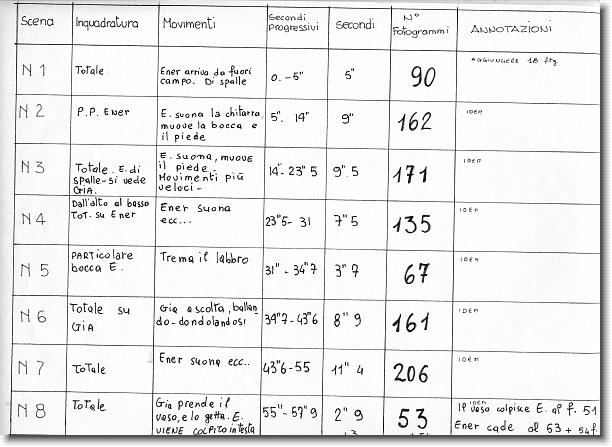 Scena Inquadratura Movimenti Secondi Progressivi Secondi N° Fotogrammi ANNOTAZIONI
N 1 Totale Ener arriva da fuori campo. Di spalle 0.-5" 5" 90 AGGIUNGERE 18 ftg.
N 2 P.P. Ener E. suona la chitarra, muove la bocca e il piede 5". 14" 9" 162 IDEM
N 3 Totale. E. di spalle-si vede GIA. E. suona, muove il piede. Movimenti più veloci- 14"-23"5 9".5 171 IDEM
N 4 Dall'alto al basso Tot. su Ener Ener suona ecc... 23"5- 31 7"5 135 IDEM
N 5 PARTICOLARE bocca E. Trema il labbro 31" - 34"7 3"7 67 IDEM
N 6 Totale su GIA Gia ascolta, ballando-dondolandosi 34"7-43"6 8" 9 161 IDEM
N 7 Totale Ener suona ecc.. 43"6-55 11" 4 206 IDEM
N 8 Totale Gia prende il vaso, e lo getta. E. VIENE COLPITO in testa 55"-57"9 2" 9 53 IDEM Il vaso colpisce E. al f. 51 Ener cade al 53 + 54f.